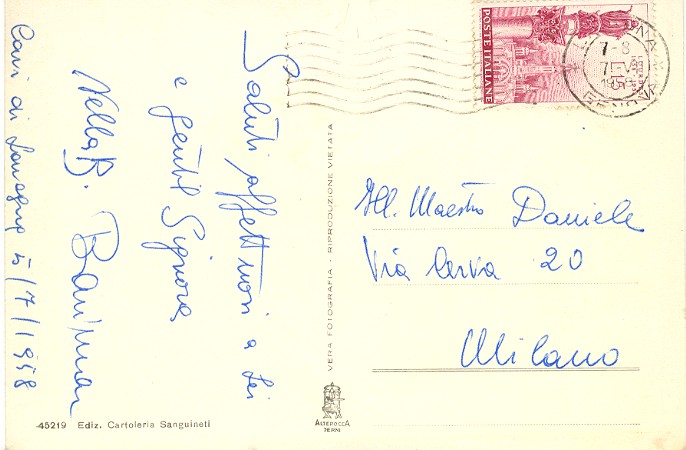 Saluti affettuosi a Lei
e gentil Signora,
Nella B.
Cavi di Lavagna 5/7/1958
POSTE ITALIANE
7-8
GENOVA
VERA FOTOGRAFIA - RIPRODUZIONE VIETATA
Ill. Maestro Daniele
Via Cerva 20
Milano
45219 Ediz. Cartoleria Sanguineti
ALTEROCCA
TERNI